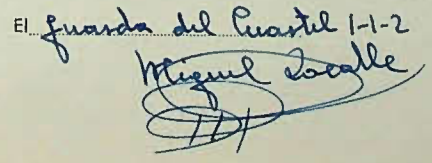 El guarda del Cuartel 1-1-2
Miguel Lacalle